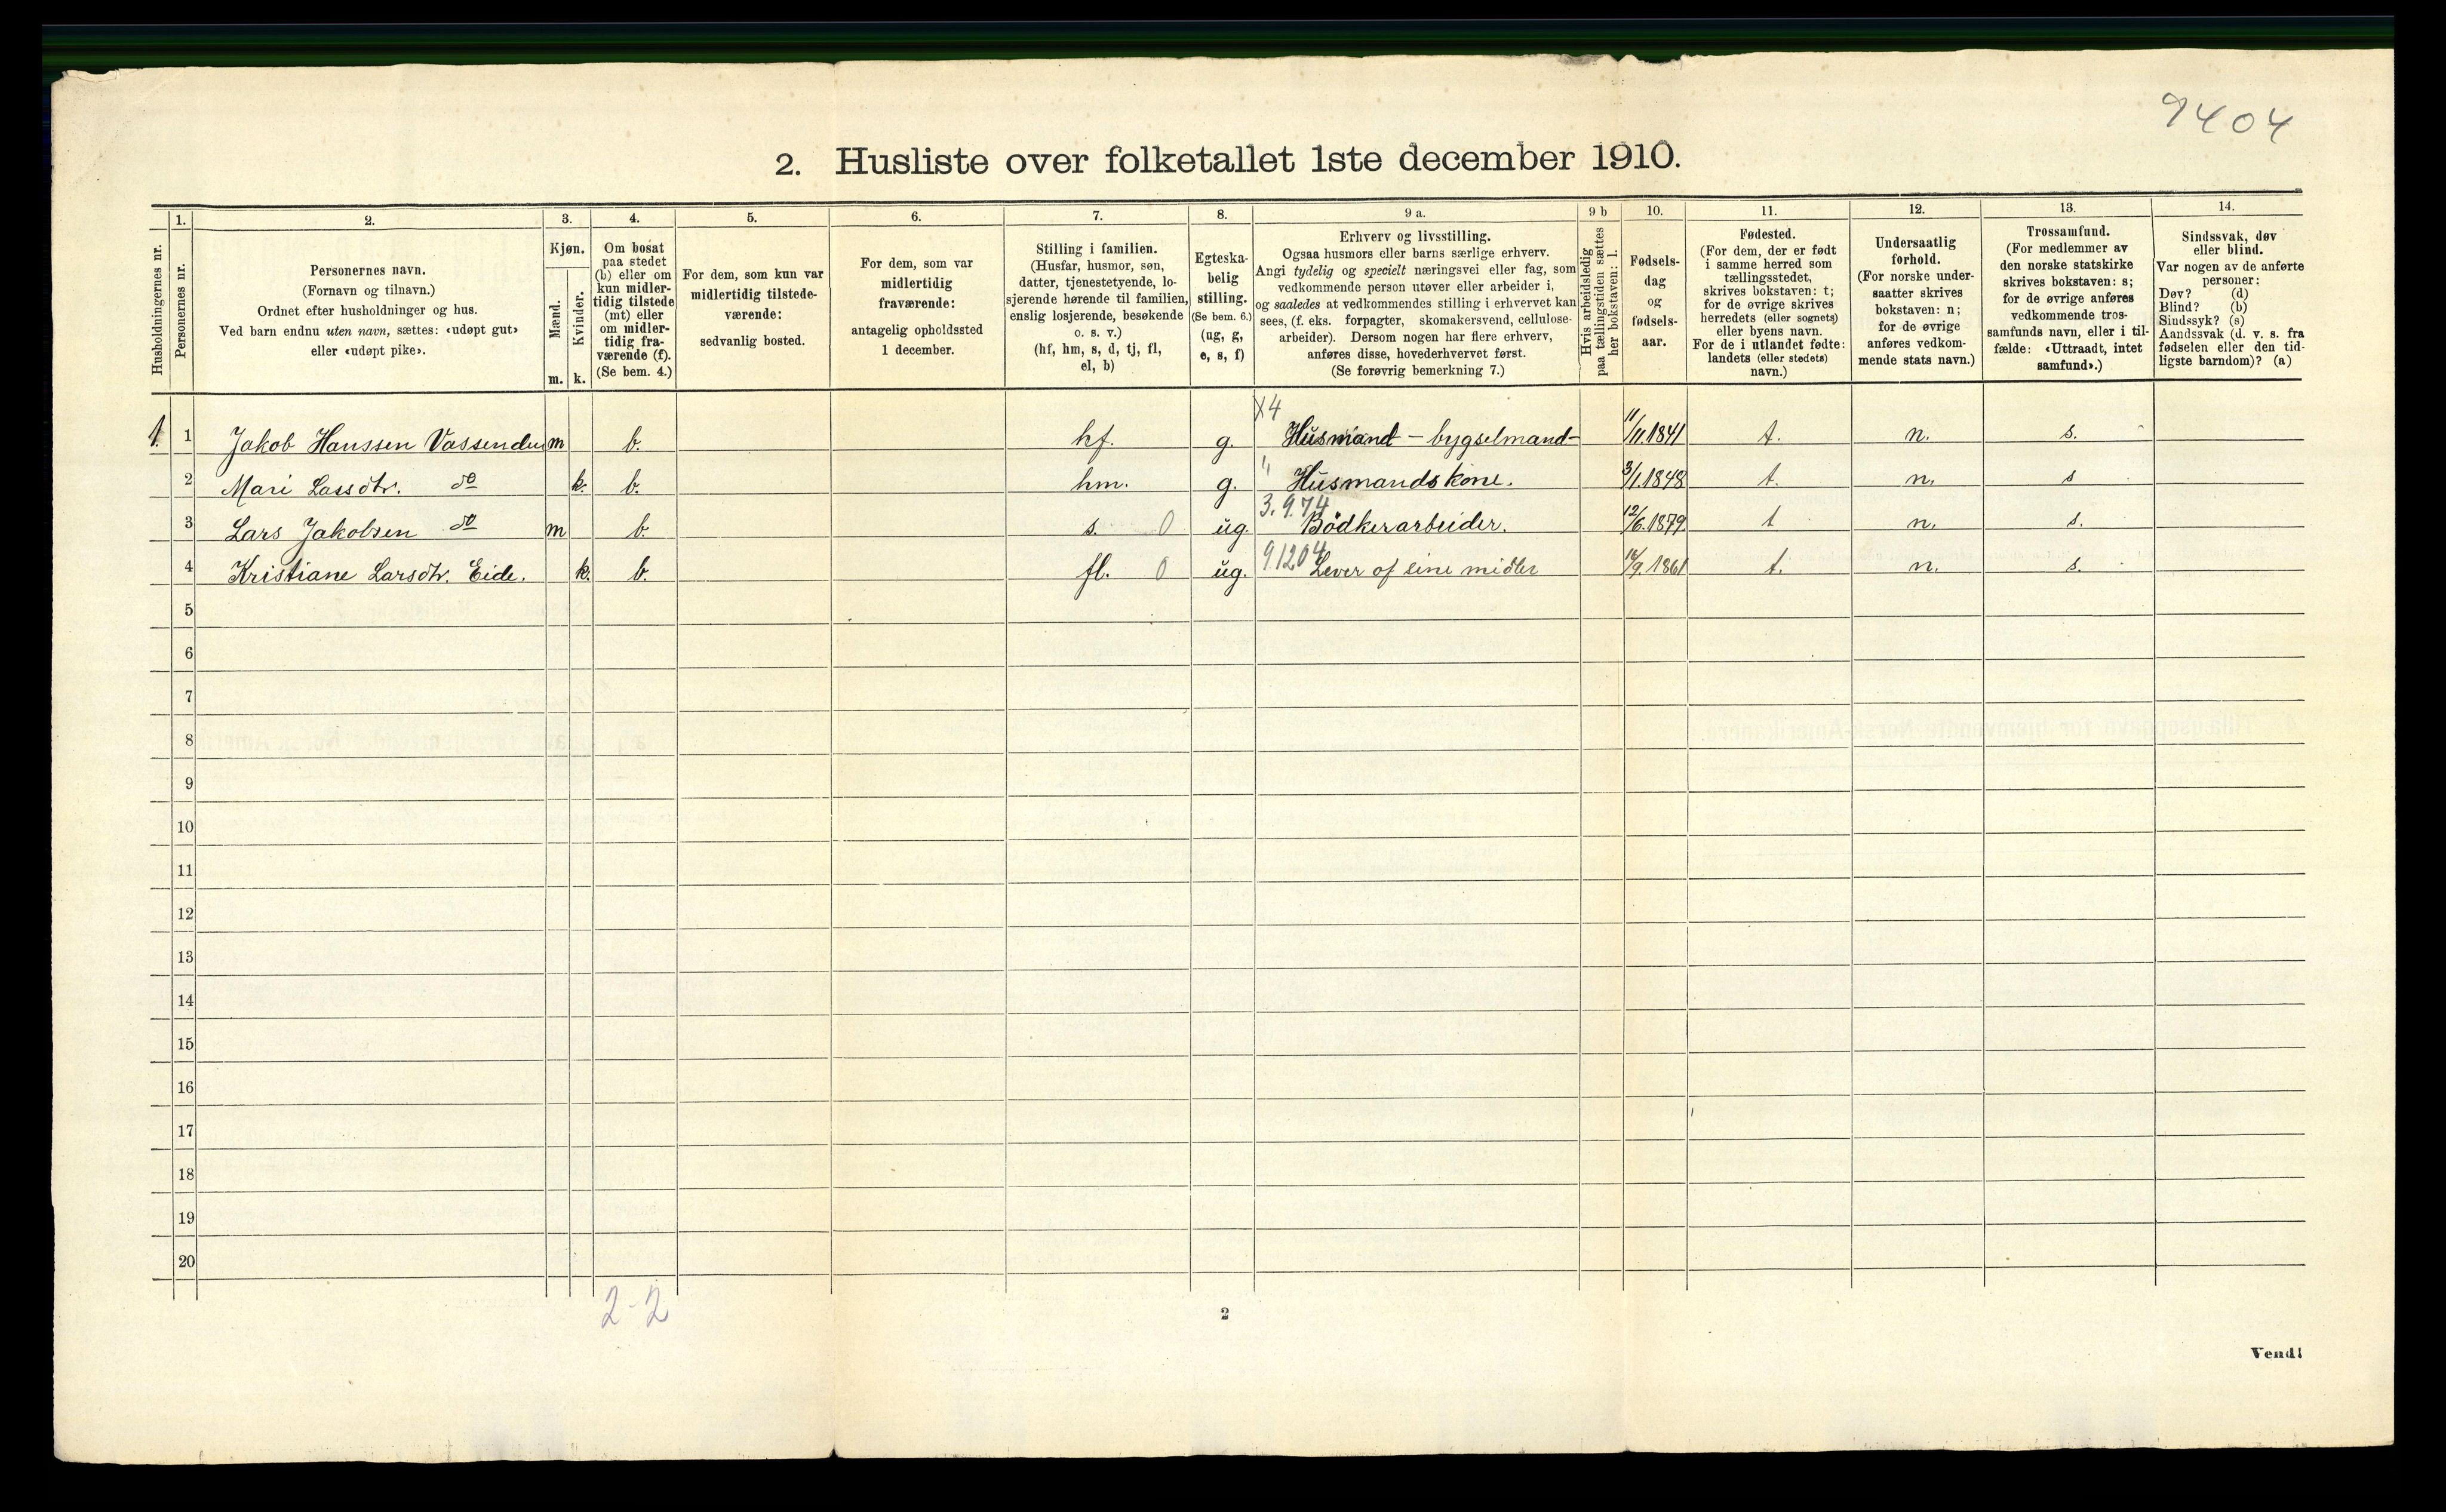 9404
2. Husliste over folketallet 1ste december 1910.
Husholdningernes nr.
1.
Personernes nr.
2.
Personernes navn.
(Fornavn og tilnavn.)
Ordnet efter husholdninger og hus.
Ved barn endnu uten navn, sættes: «udøpt gut»
eller «udøpt pike».
3.
Kjøn.
Mænd.
m.
Kvinder.
k.
4.
Om bosat
paa stedet
(b) eller om
kun midler-
tidig tilstede
(mt) eller
om midler-
tidig fra-
værende (f).
(Se bem. 4.)
5.
For dem, som kun var
midlertidig tilstede-
værende:
sedvanlig bosted.
6.
For dem, som var
midlertidig
fraværende:
antagelig opholdssted
1 december.
7.
Stilling i familien.
(Husfar, husmor, søn,
datter, tjenestetyende, lo-
sjerende hørende til familien,
enslig losjerende, besøkende
o. s. v.)
(hf, hm, s, d, tj, fl,
el, b)
8.
Egteska-
belig
stilling.
(Se bem. 6.)
(ug, g,
e, s, f)
9 a.
Erhverv og livsstilling.
Ogsaa husmors eller barns særlige erhverv.
Angi tydelig og specielt næringsvei eller fag, som
vedkommende person utøver eller arbeider i,
og saaledes at vedkommendes stilling i erhvervet kan
sees, (f. eks. forpagter, skomakersvend, cellulose-
arbeider). Dersom nogen har flere erhverv,
anføres disse, hovederhvervet først.
(Se forøvrig bemerkning 7.)
9 b
Hvis arbeidsledig
paa tællingstiden sættes
her bokstaven: l.
10.
Fødsels-
dag
og
fødsels-
aar.
11.
Fødested.
(For dem, der er født
i samme herred som
tællingsstedet,
skrives bokstaven: t;
for de øvrige skrives
herredets (eller sognets)
eller byens navn.
For de i utlandet fødte:
landets (eller stedets)
navn.)
12.
Undersaatlig
forhold.
(For norske under-
saatter skrives
bokstaven: n;
for de øvrige
anføres vedkom-
mende stats navn.)
13.
Trossamfund.
(For medlemmer av
den norske statskirke
skrives bokstaven: s;
for de øvrige anføres
vedkommende tros-
samfunds navn, eller i til-
fælde: «Uttraadt, intet
samfund».)
14.
Sindssvak, døv
eller blind.
Var nogen av de anførte
personer:
Døv? (d)
Blind? (b)
Sindssyk? (s)
Aandssvak (d. v. s. fra
fødselen eller den tid-
ligste barndom)? (a)
X4
1. 1 Jakob Hanssen Vassenden m b. hf. g. Husmand - bygselmand- 11/11.1841 t. n. s.
2 Mari Lassdtr. do k. b. hm. g. " Husmandskone. 3/1.1848 t. n. s
3.9.74
3 Lars Jakobsen do m b. s. 0 ug. Bödkerarbeider. 12/6.1879 t n. s.
4 Kristiane Larsdtr. Eide. k. b. fl. 0 ug. 91204 Lever af sine midler /9.1861 t. n. s.
5
6
7
8
9
10
11
12
13
14
15
16
17
18
19
20
2-2
2
Vend!